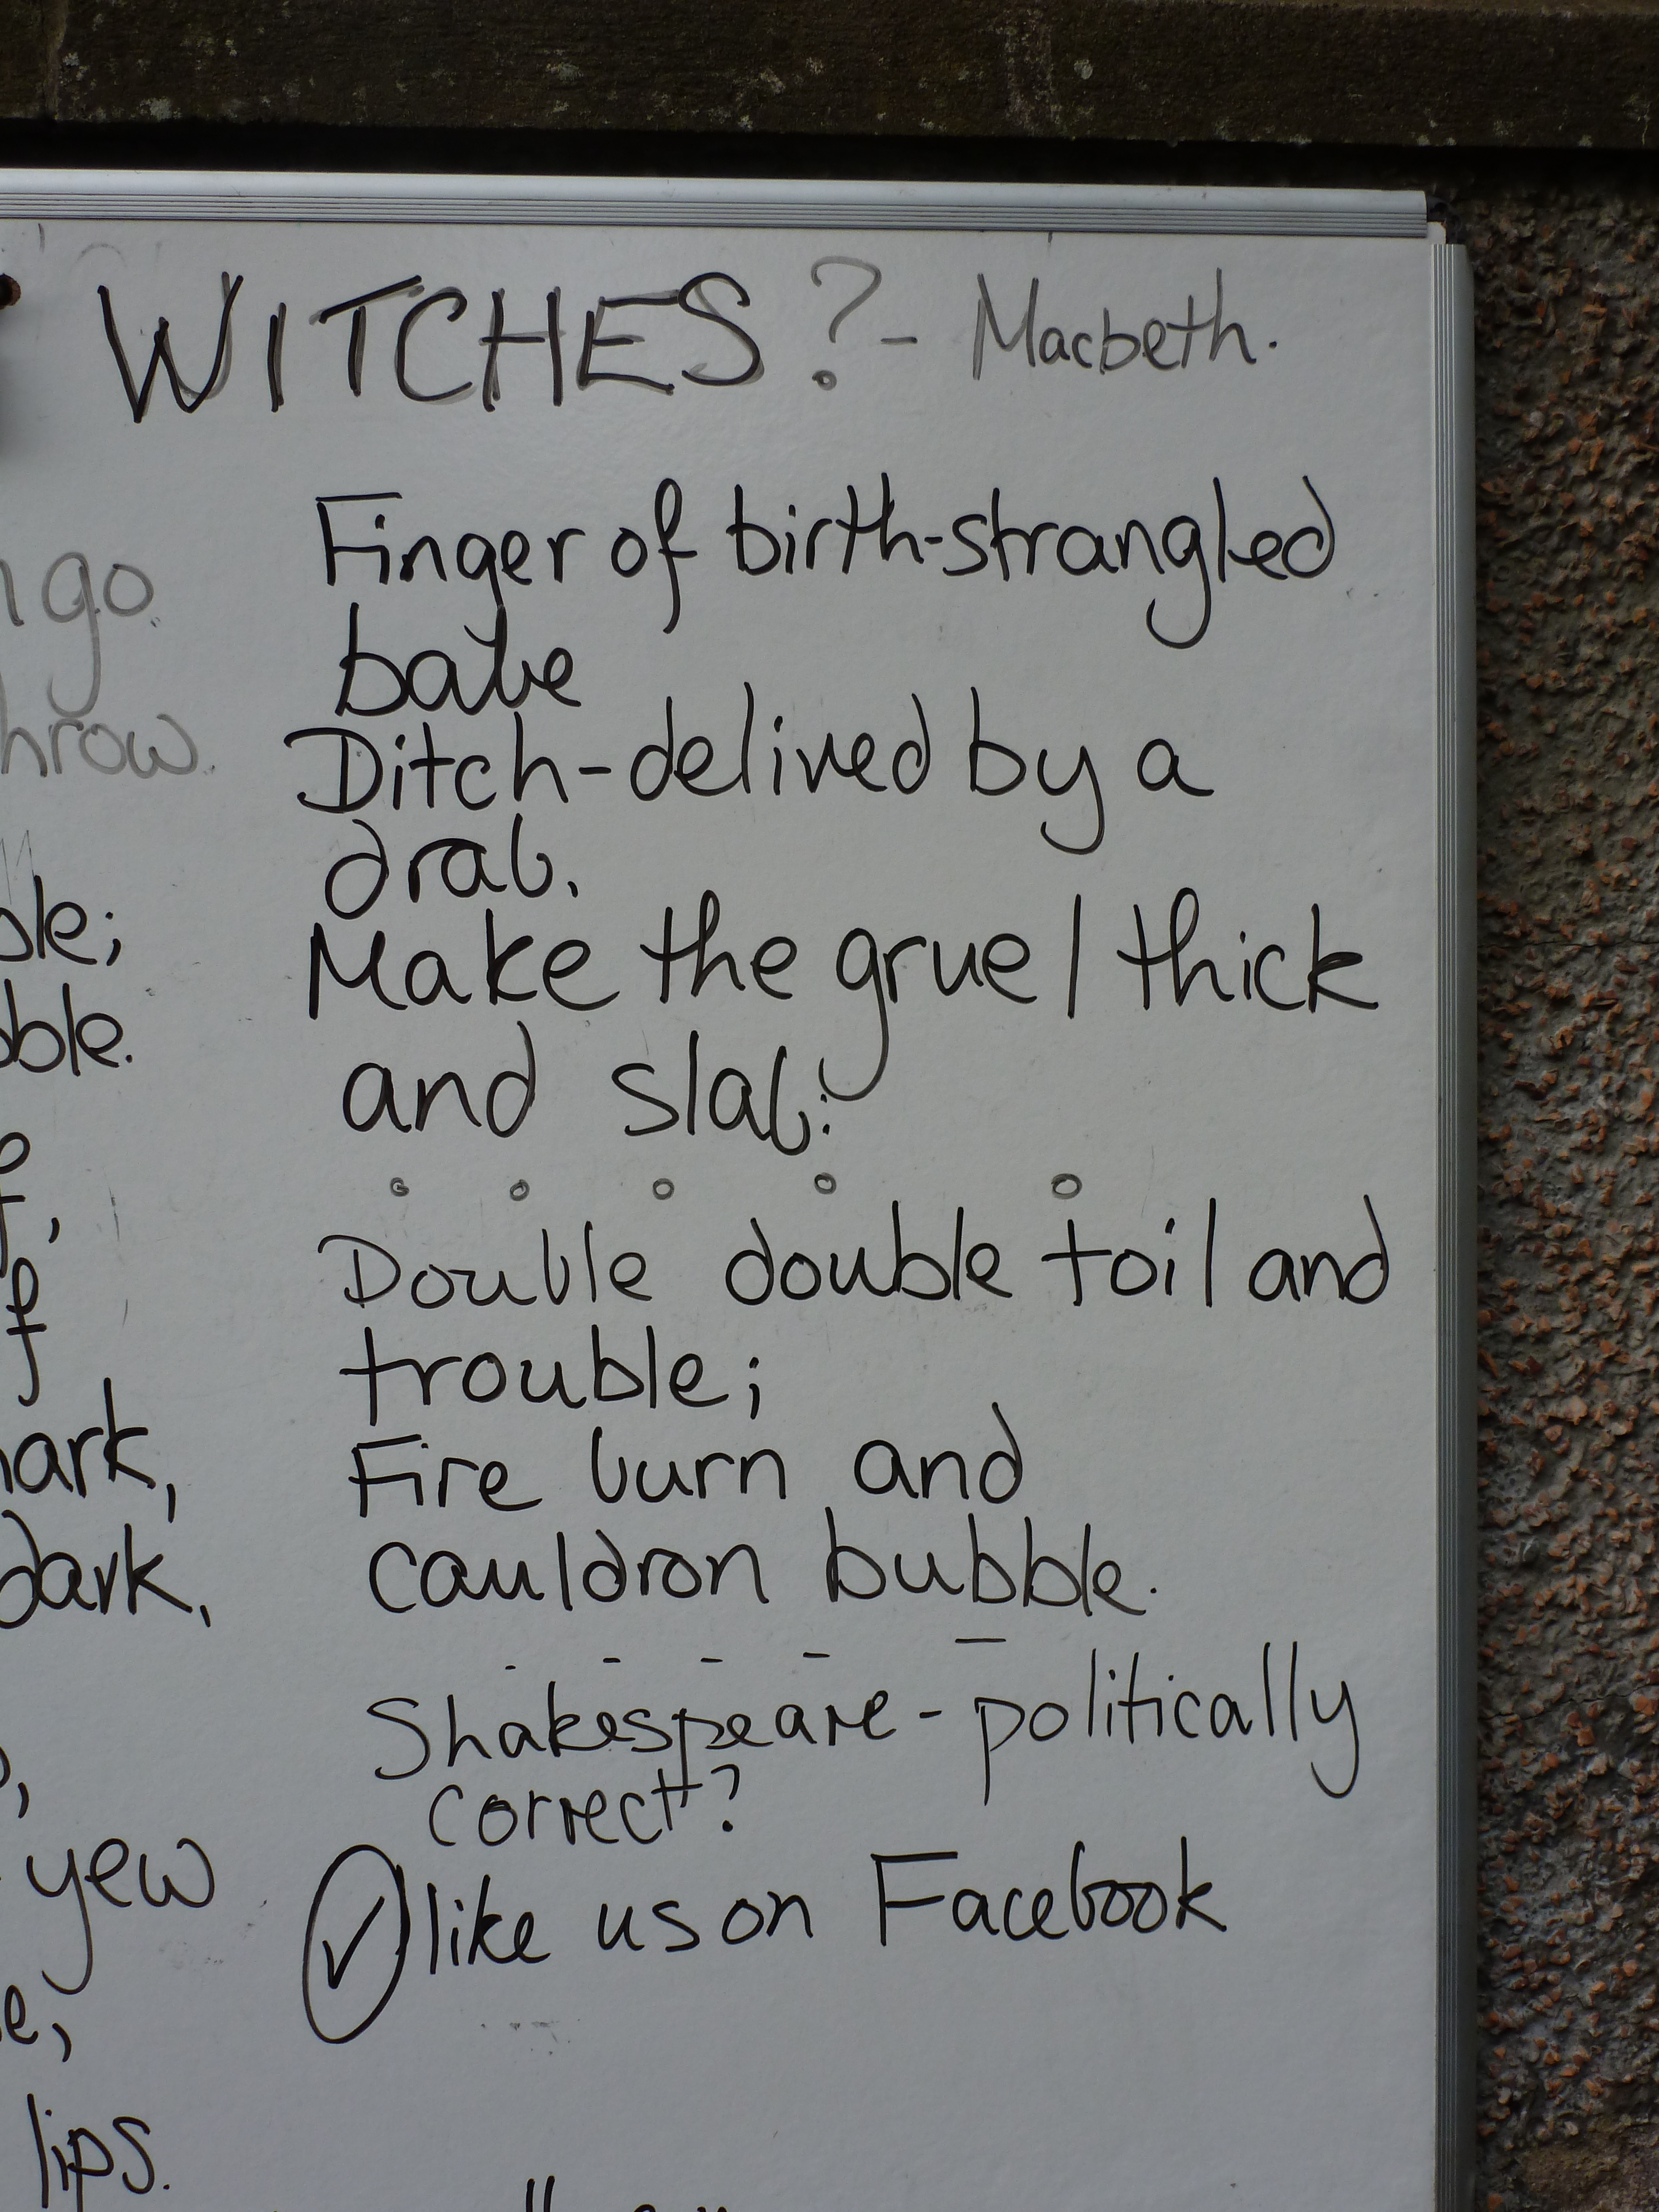 WITCHES? - Macbeth.
go
hrow.
ble;
bble.
f,
f
ark,
dark,
yew
e,
lips.
Finger of birth-strangled
babe
Ditch-delived by a
drab.
Make the gruel thick
and slab:
Double double toil and
trouble;
Fire burn and
cauldron bubble.
Shakespeare - politically
correct?
✓ like us on Facebook